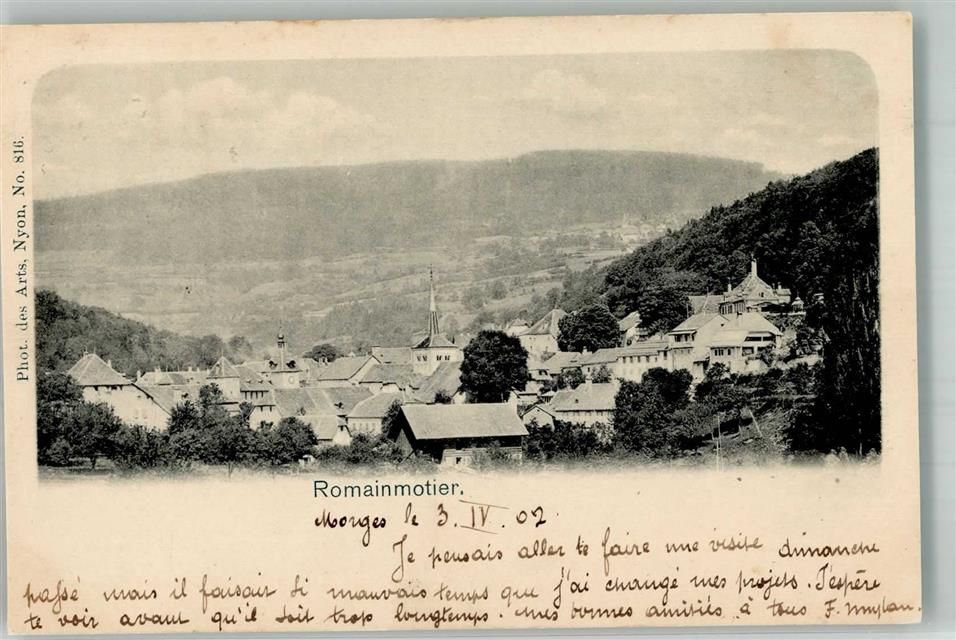 Phot. des Arts, Nyon, No. 816.
Romainmotier.
Morges le 3. IV. 02
Je pensais aller te faire une visite dimanche
passé mais il faisait si mauvais temps que j'ai changé mes projets. J'espère
te voir avant qu'il soit trop longtemps. Mes bonnes amitiés à tous F.